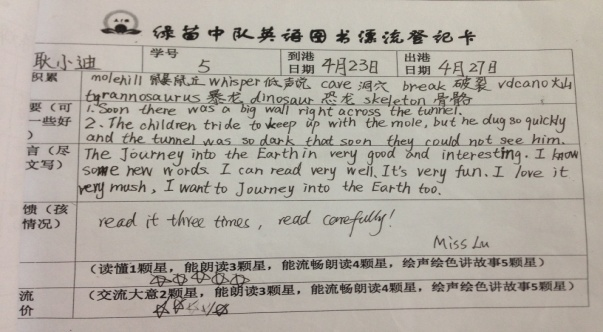 绿苗中队英语图书漂流登记卡
耿小迪 学号 5 到港日期 4月23日 出港日期 4月27日
积累 molehill 鼹鼠丘 whisper 低声说 cave 洞穴 break 破裂 vdcano 火山
tyrannosaurus 暴龙 dinosaur 恐龙 skeleton 骨骼
要（可一些好） 1. Soon there was a big wall right across the tunnel.
2. The children tride to keep up with the mole, but he dug so quickly
and the tunnel was so dark that soon they could not see him.
言（尽文写） The Journey into the Earth in very good and interesting. I know
some new words. I can read very well. It's very fun. I love it
very mush, I want to Journey into the Earth too.
馈（孩情况） read it three times, read carefully!
Miss Lu
（读懂1颗星，能朗读3颗星，能流畅朗读4颗星，绘声绘色讲故事5颗星）
流 （交流大意2颗星，能朗读3颗星，能流畅朗读4颗星，绘声绘色讲故事5颗星）
价